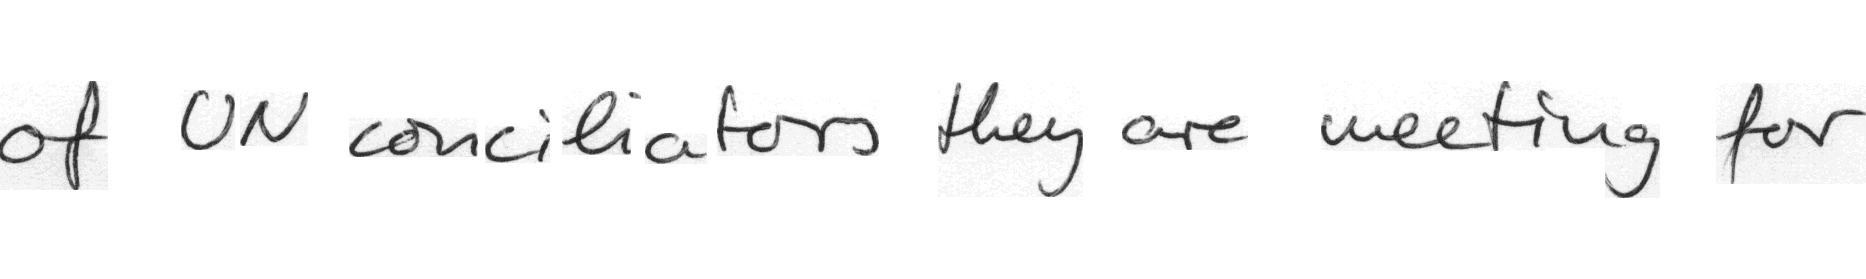 of UN conciliators they are meeting for